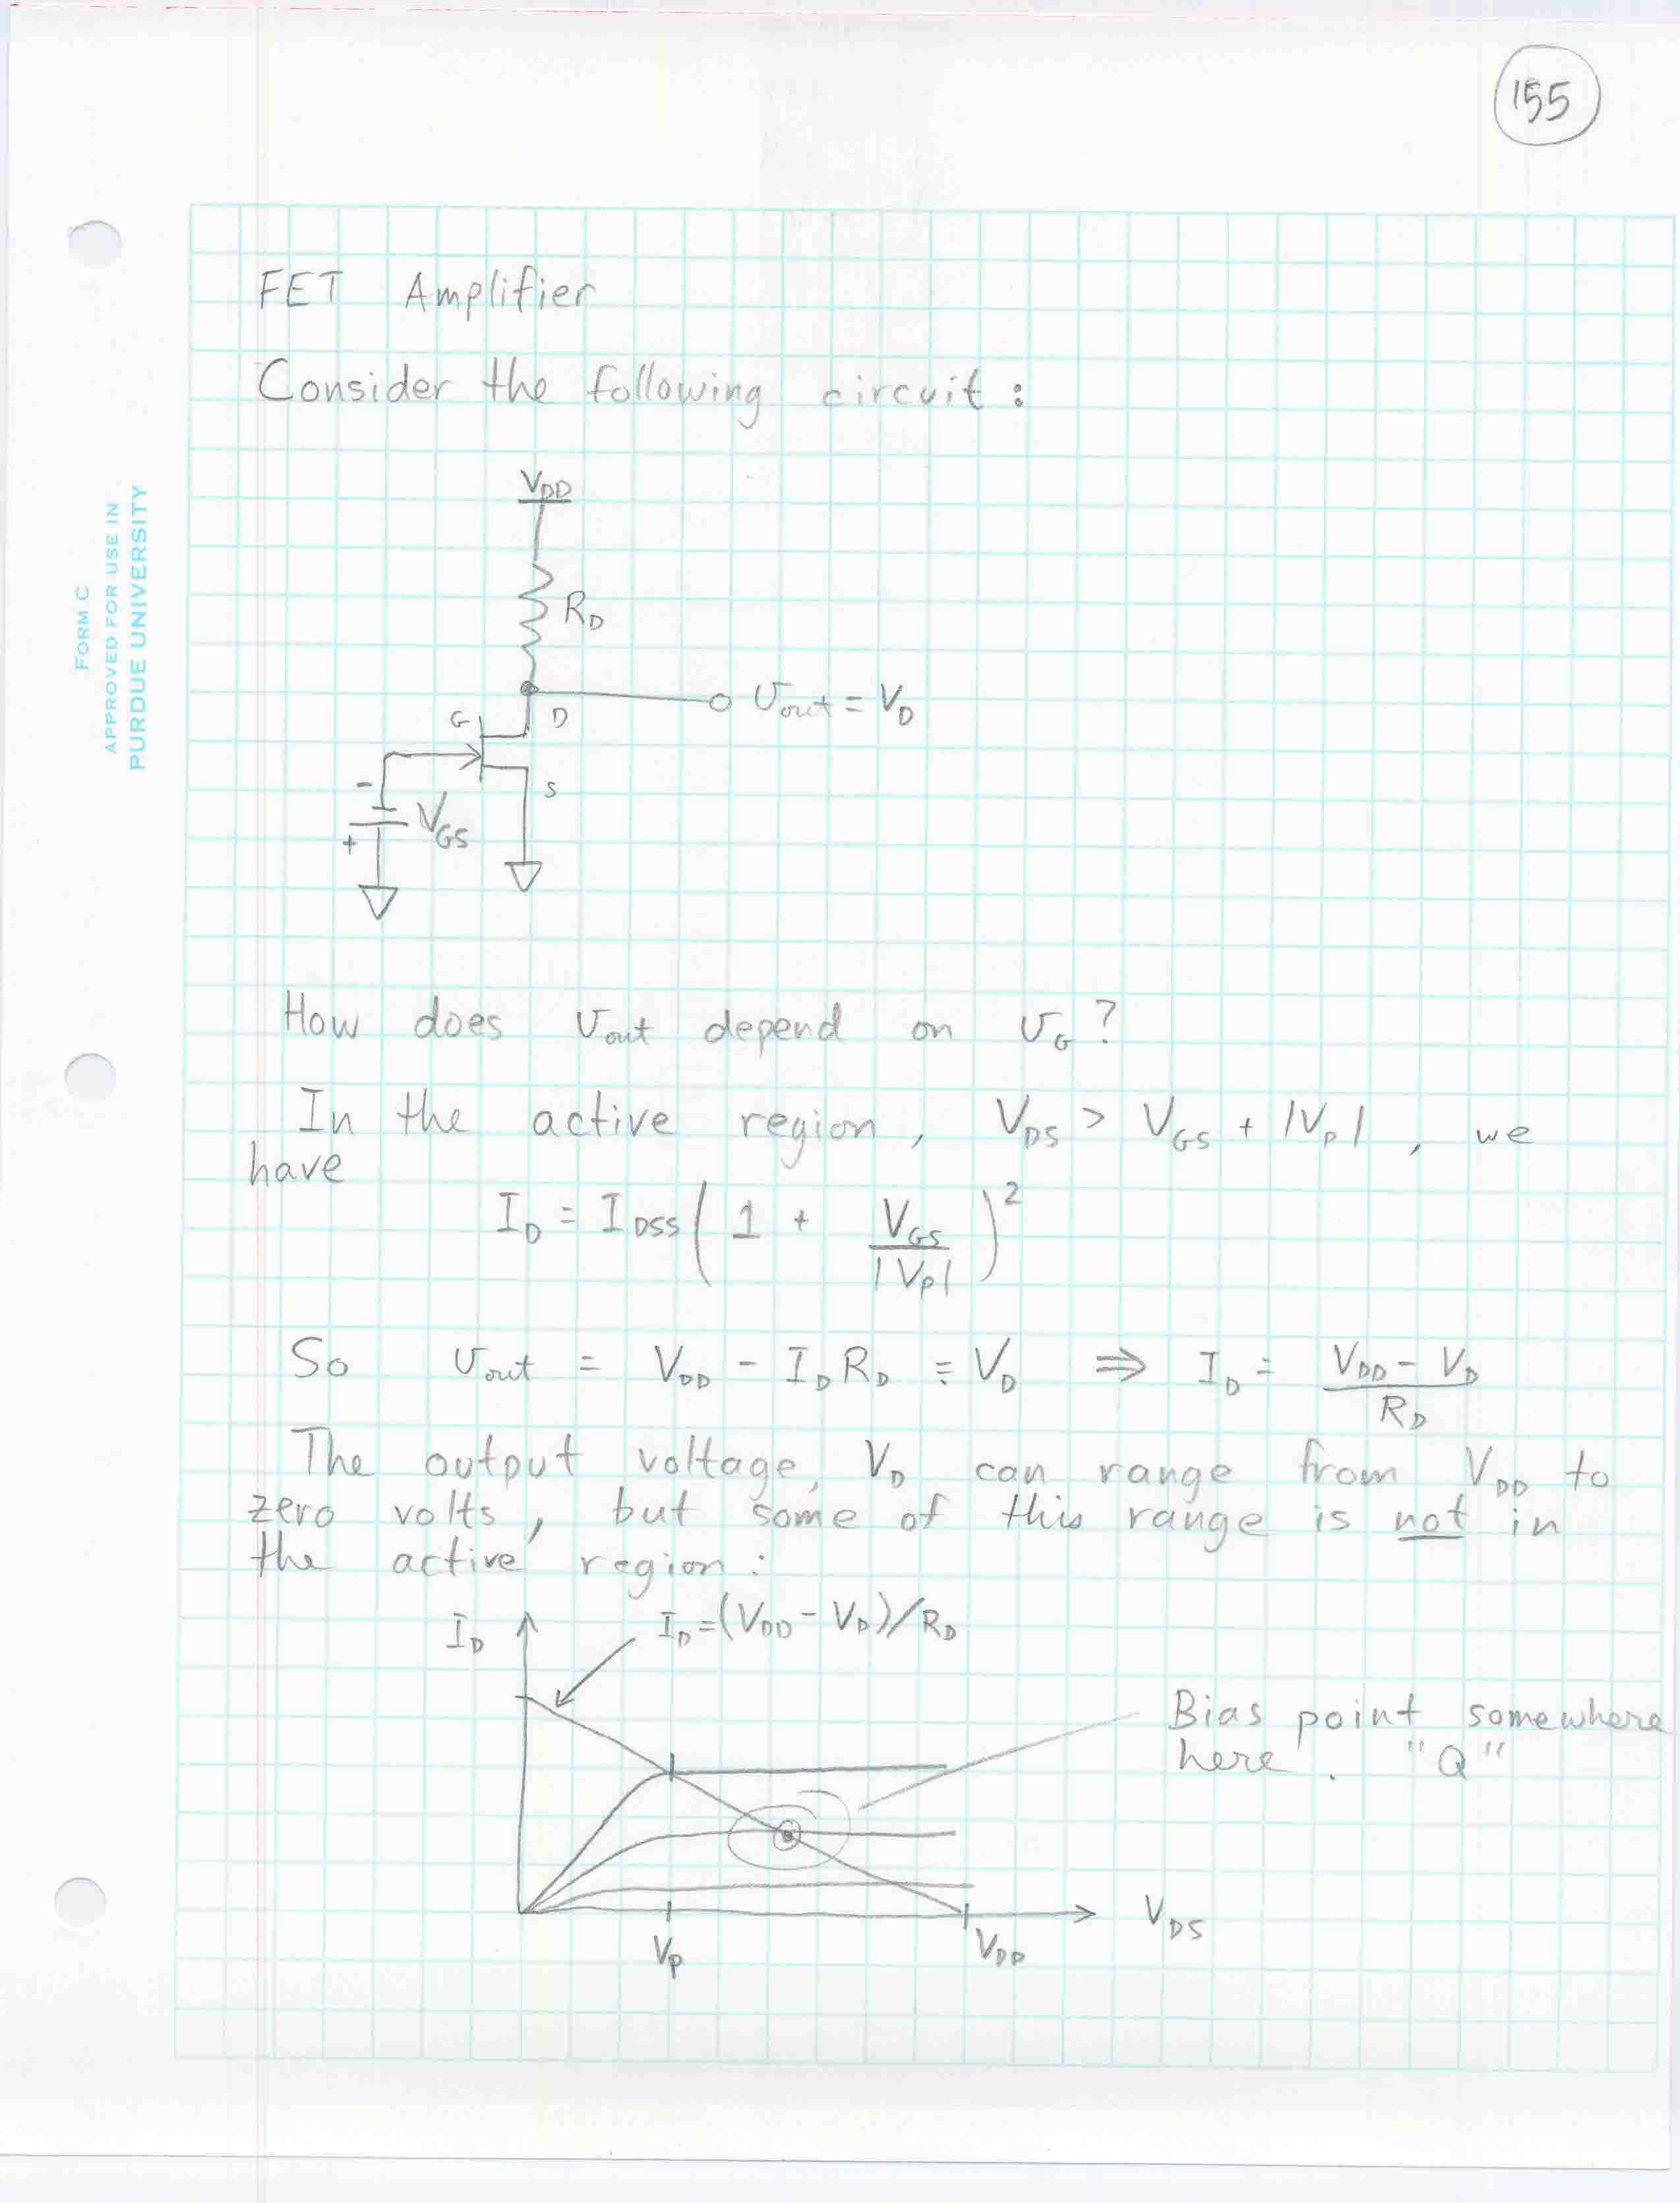 155
FORM C
APPROVED FOR USE IN
PURDUE UNIVERSITY
FET Amplifier
Consider the following circuit:
V_DD
R_D
v_out = V_D
G
D
S
-
+
V_GS
How does v_out depend on v_G?
In the active region, V_DS > V_GS + |V_P|, we
have
I_D = I_DSS (1 + V_GS / |V_P|)^2
So v_out = V_DD - I_D R_D = V_D ⇒ I_D = (V_DD - V_D) / R_D
The output voltage, V_D can range from V_DD to
zero volts, but some of this range is not in
the active region:
I_D
I_D = (V_DD - V_D)/R_D
Bias point somewhere
here. "Q"
V_P
V_DD
V_DS